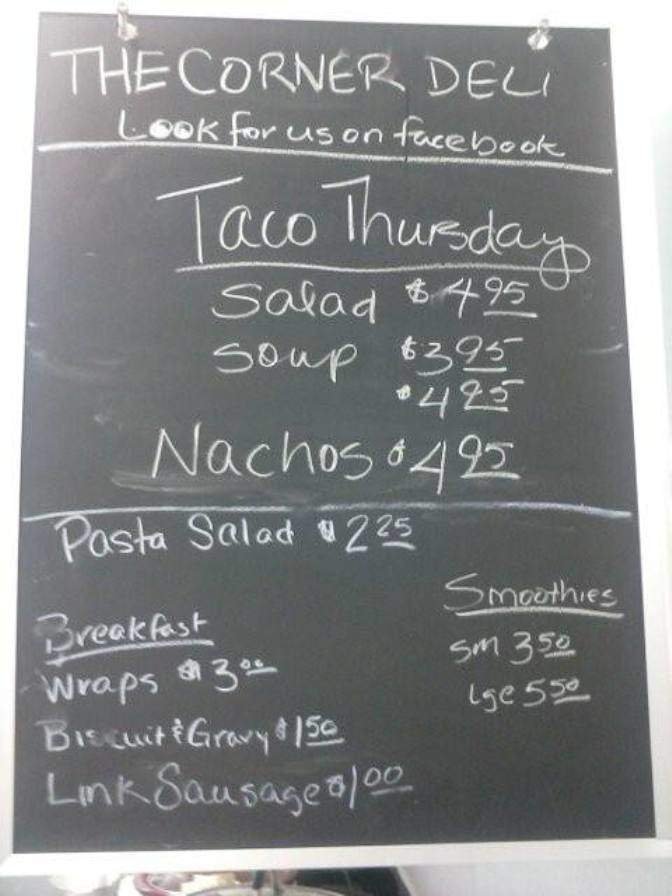 THE CORNER DELI
Look for us on facebook
Taco Thursday
Salad $4.95
Soup $3.95
$4.25
Nachos $4.95
Pasta Salad $2.25
Smoothies
sm 3.50
lge 5.50
Breakfast
Wraps $3.00
Biscuit & Gravy $1.50
Link Sausage $1.00